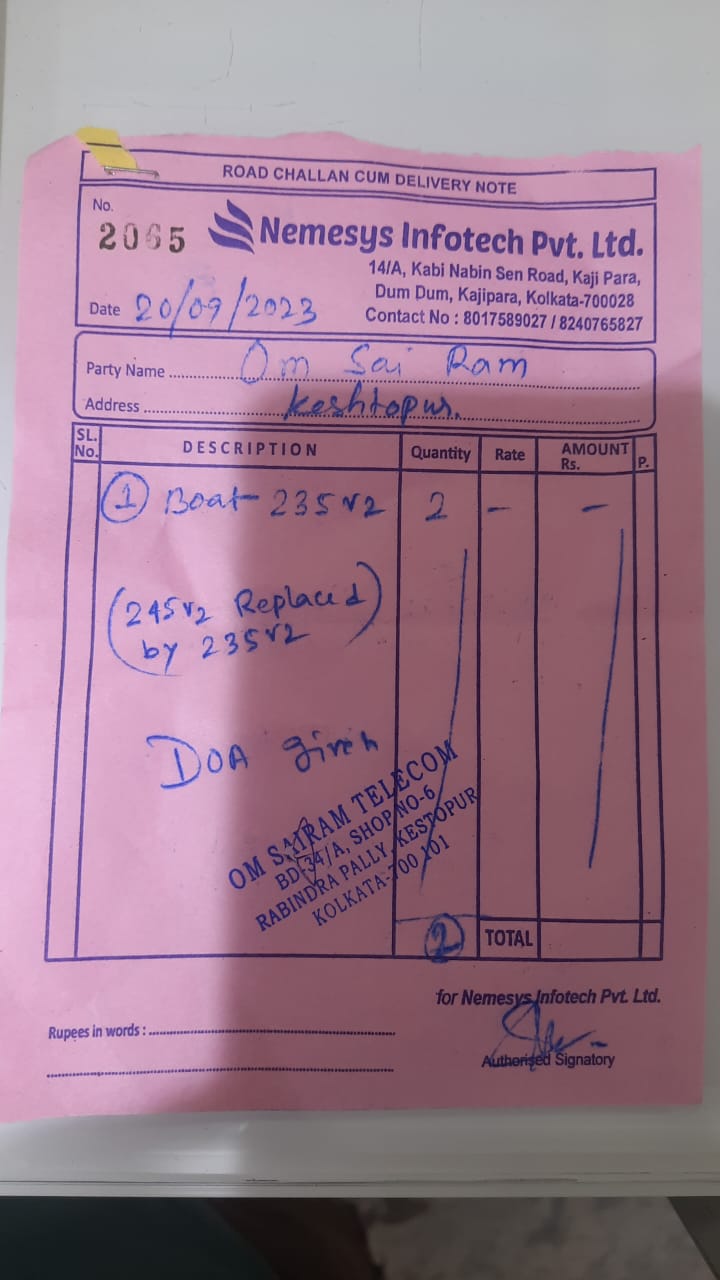 ROAD CHALLAN CUM DELIVERY NOTE
No.
2065
Nemesys Infotech Pvt. Ltd.
14/A, Kabi Nabin Sen Road, Kaji Para,
Dum Dum, Kajipara, Kolkata-700028
Contact No : 8017589027 / 8240765827
Date 20/09/2023
Party Name Om Sai Ram
Address Keshtopur.
SL. No. DESCRIPTION Quantity Rate AMOUNT Rs. P.
1 Boat 235v2 2 - -
(245v2 Replaced
by 235v2)
DOA given
OM SAIRAM TELECOM
BD-34/A, SHOP NO-6
RABINDRA PALLY, KESTOPUR
KOLKATA-700 101
2 TOTAL
for Nemesys Infotech Pvt. Ltd.
Rupees in words :
Authorised Signatory